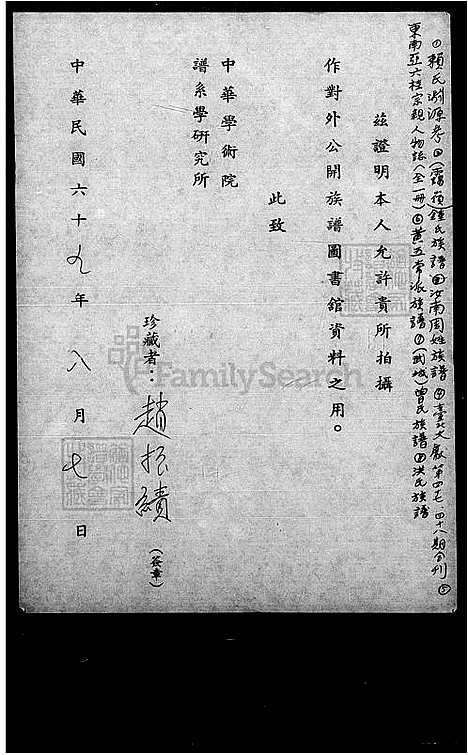 ①賴氏淵源考②(霞嶺)鍾氏族譜③汝南周姓族譜④臺北文獻第四七、四十八期合刊⑤
東南亞六桂宗親人物誌(全一冊)⑥黃五常派族譜⑦(武城)曾氏族譜⑧洪氏族譜
茲證明本人允許貴所拍攝
作對外公開族譜圖書館資料之用。
此致
中華學術院
譜系學研究所
珍藏者：趙振績(簽章)
中華民國六十九年八月七日
FamilySearch